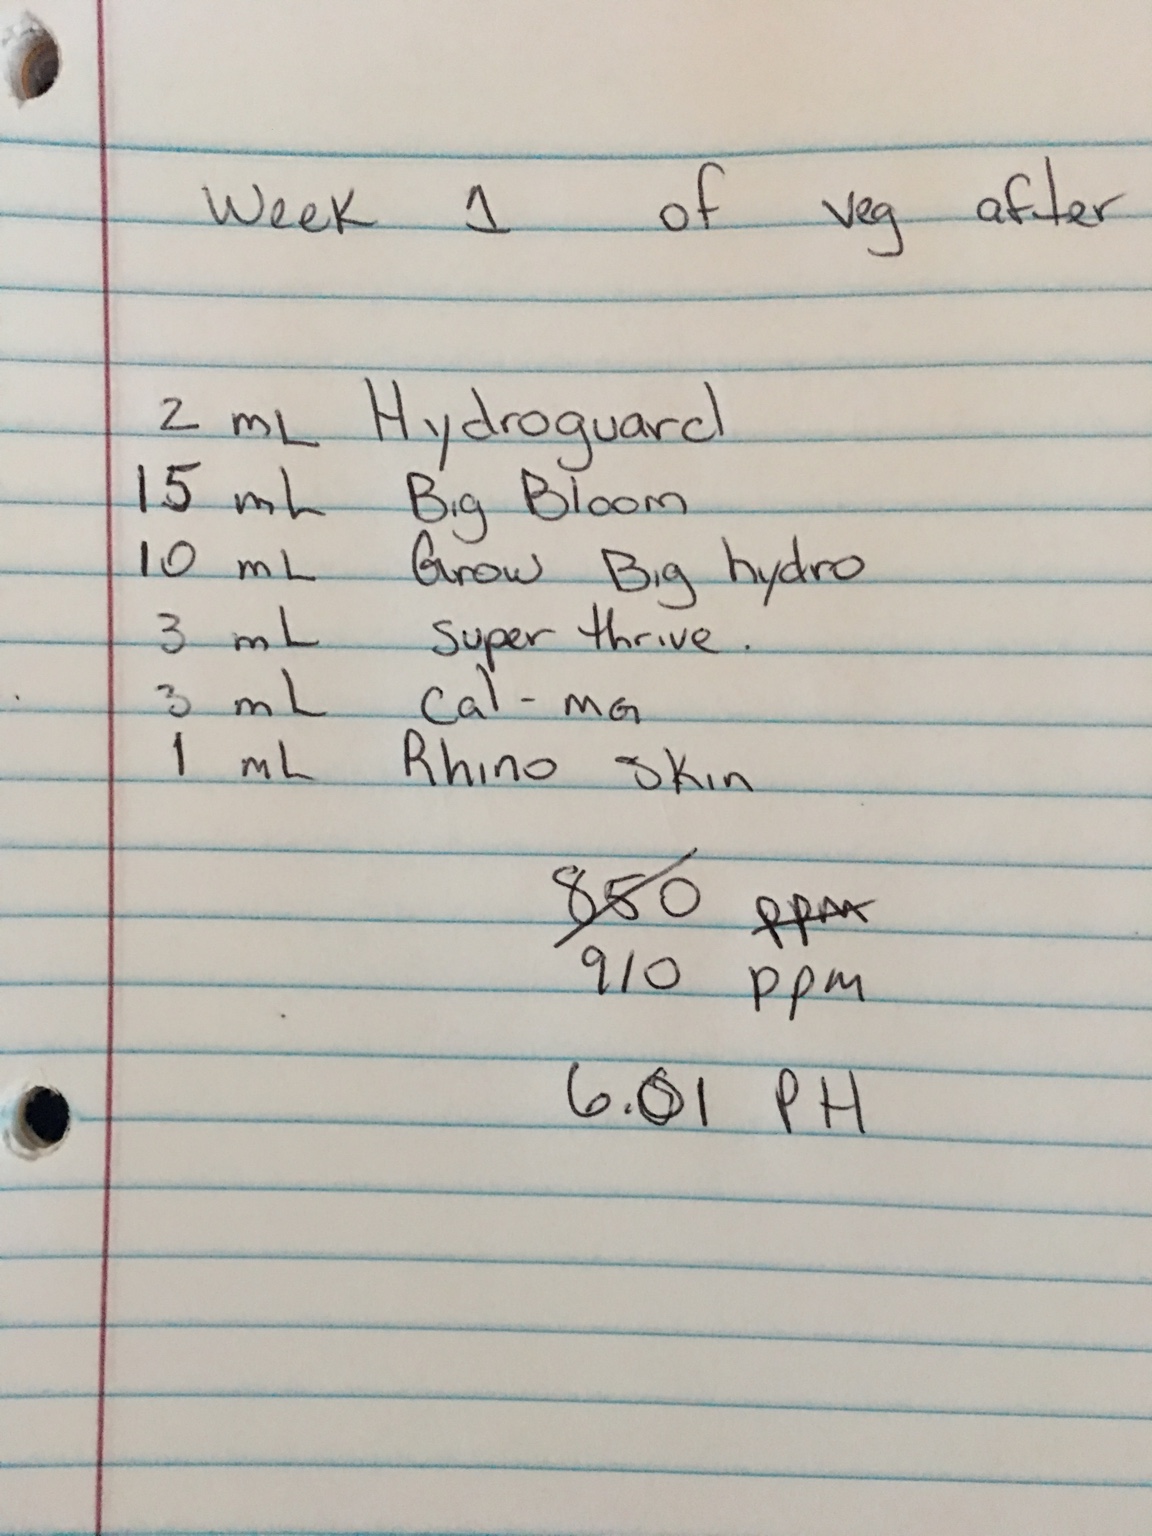 Week 1 of veg after
2 mL Hydroguard
15 mL Big Bloom
10 mL Grow Big hydro
3 mL super thrive.
3 mL Cal-MG
1 mL Rhino skin
850 ppm
910 ppm
6.01 PH